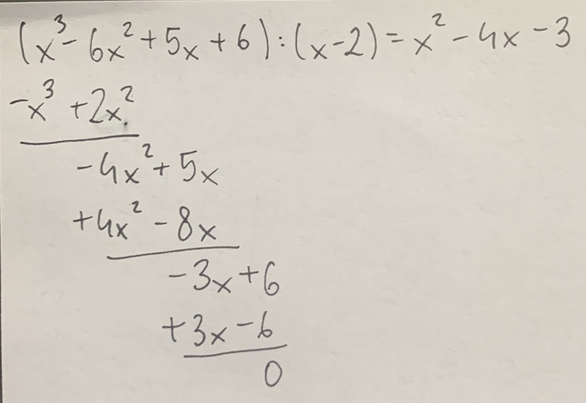 (x³ - 6x² + 5x + 6) : (x - 2) = x² - 4x - 3
-x³ + 2x²
-4x² + 5x
+4x² - 8x
-3x + 6
+3x - 6
0